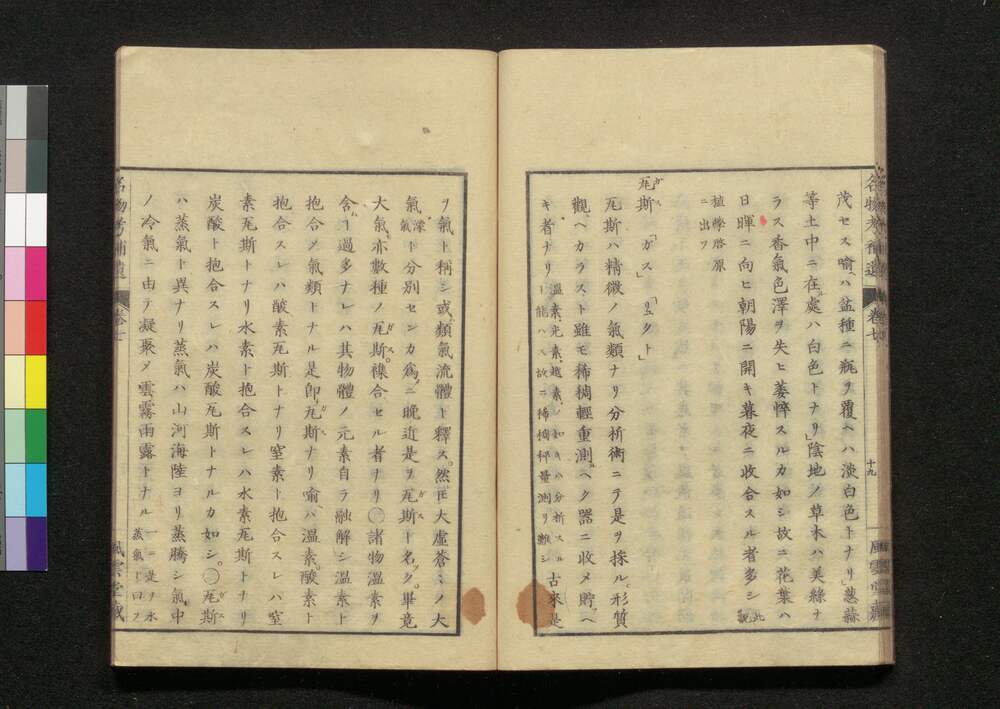 茂セス喩ヘハ盆種ニ瓶ヲ覆ヘハ淡白色トナリ」葱蒜
等土中ニ在ル處ハ白色トナリ」陰地ノ草木ハ美綠ナ
ラス香氣色澤ヲ失ヒ萎悴スルカ如シ故ニ花葉ハ
日暉ニ向ヒ朝陽ニ開キ暮夜ニ收合スル者多シ此説
植學啓原ニ出ツ
瓦斯ガス「ガス」「リュクト」
瓦斯ハ精微ノ氣類ナリ分析術ニテ是ヲ採ル、形質
觀ヘカラスト雖モ稀稠輕重測ルヘク器ニ收メ貯フヘ
キ者ナリ溫素光素越素ノ如キハ分析スル能ハス故ニ稀稠秤量測リ難シ古來是
名物考補遺 卷七 十九 風雲堂藏
ヲ氣ト稱シ或ハ類氣流體ト釋ス然𪜈大虛蒼々ノ大
氣濛氣ト分別センカ爲ニ晩近是ヲ瓦斯ト名ツク畢竟
大氣モ亦數種ノ瓦斯ガス襍合セル者ナリ〇諸物溫素ヲ
含ムヿ過多ナレハ其物體ノ元素自ラ融解シ溫素ト
抱合メ氣類トナル是卽瓦斯ナリ喩ヘハ溫素酸素ト
抱合スレハ酸素瓦斯トナリ窒素ト抱合スレハ窒
素瓦斯トナリ水素ト抱合スレハ水素瓦斯トナリ
炭酸ト抱合スレハ炭酸瓦斯トナルカ如シ〇瓦斯
ハ蒸氣ト異ナリ蒸氣ハ山河海陸ヨリ蒸騰シ氣中
ノ冷氣ニ由テ凝聚メ雲霧雨露トナル一ニ是ヲ水蒸氣ト曰フ
名物考補遺 卷七 風雲堂藏